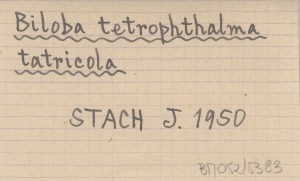 Biloba tetrophthalma
tatricola
STACH J. 1950